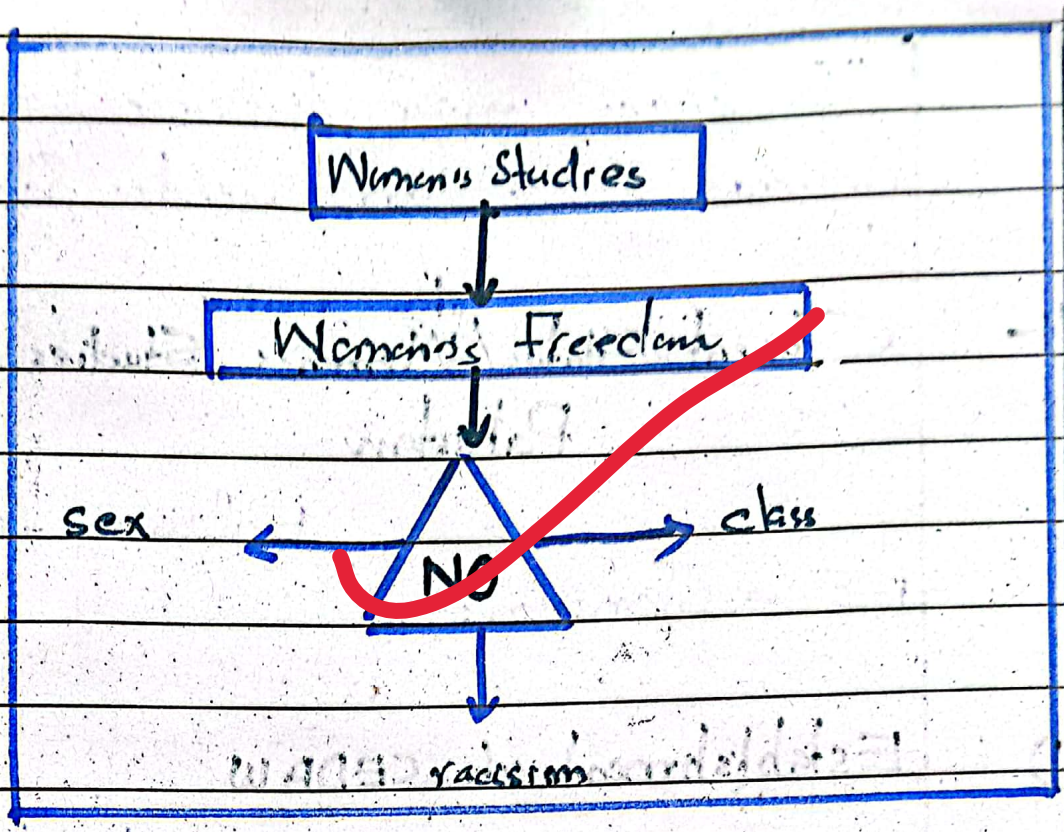 Women's Studies
Women's Freedom
sex
class
NO
racisism